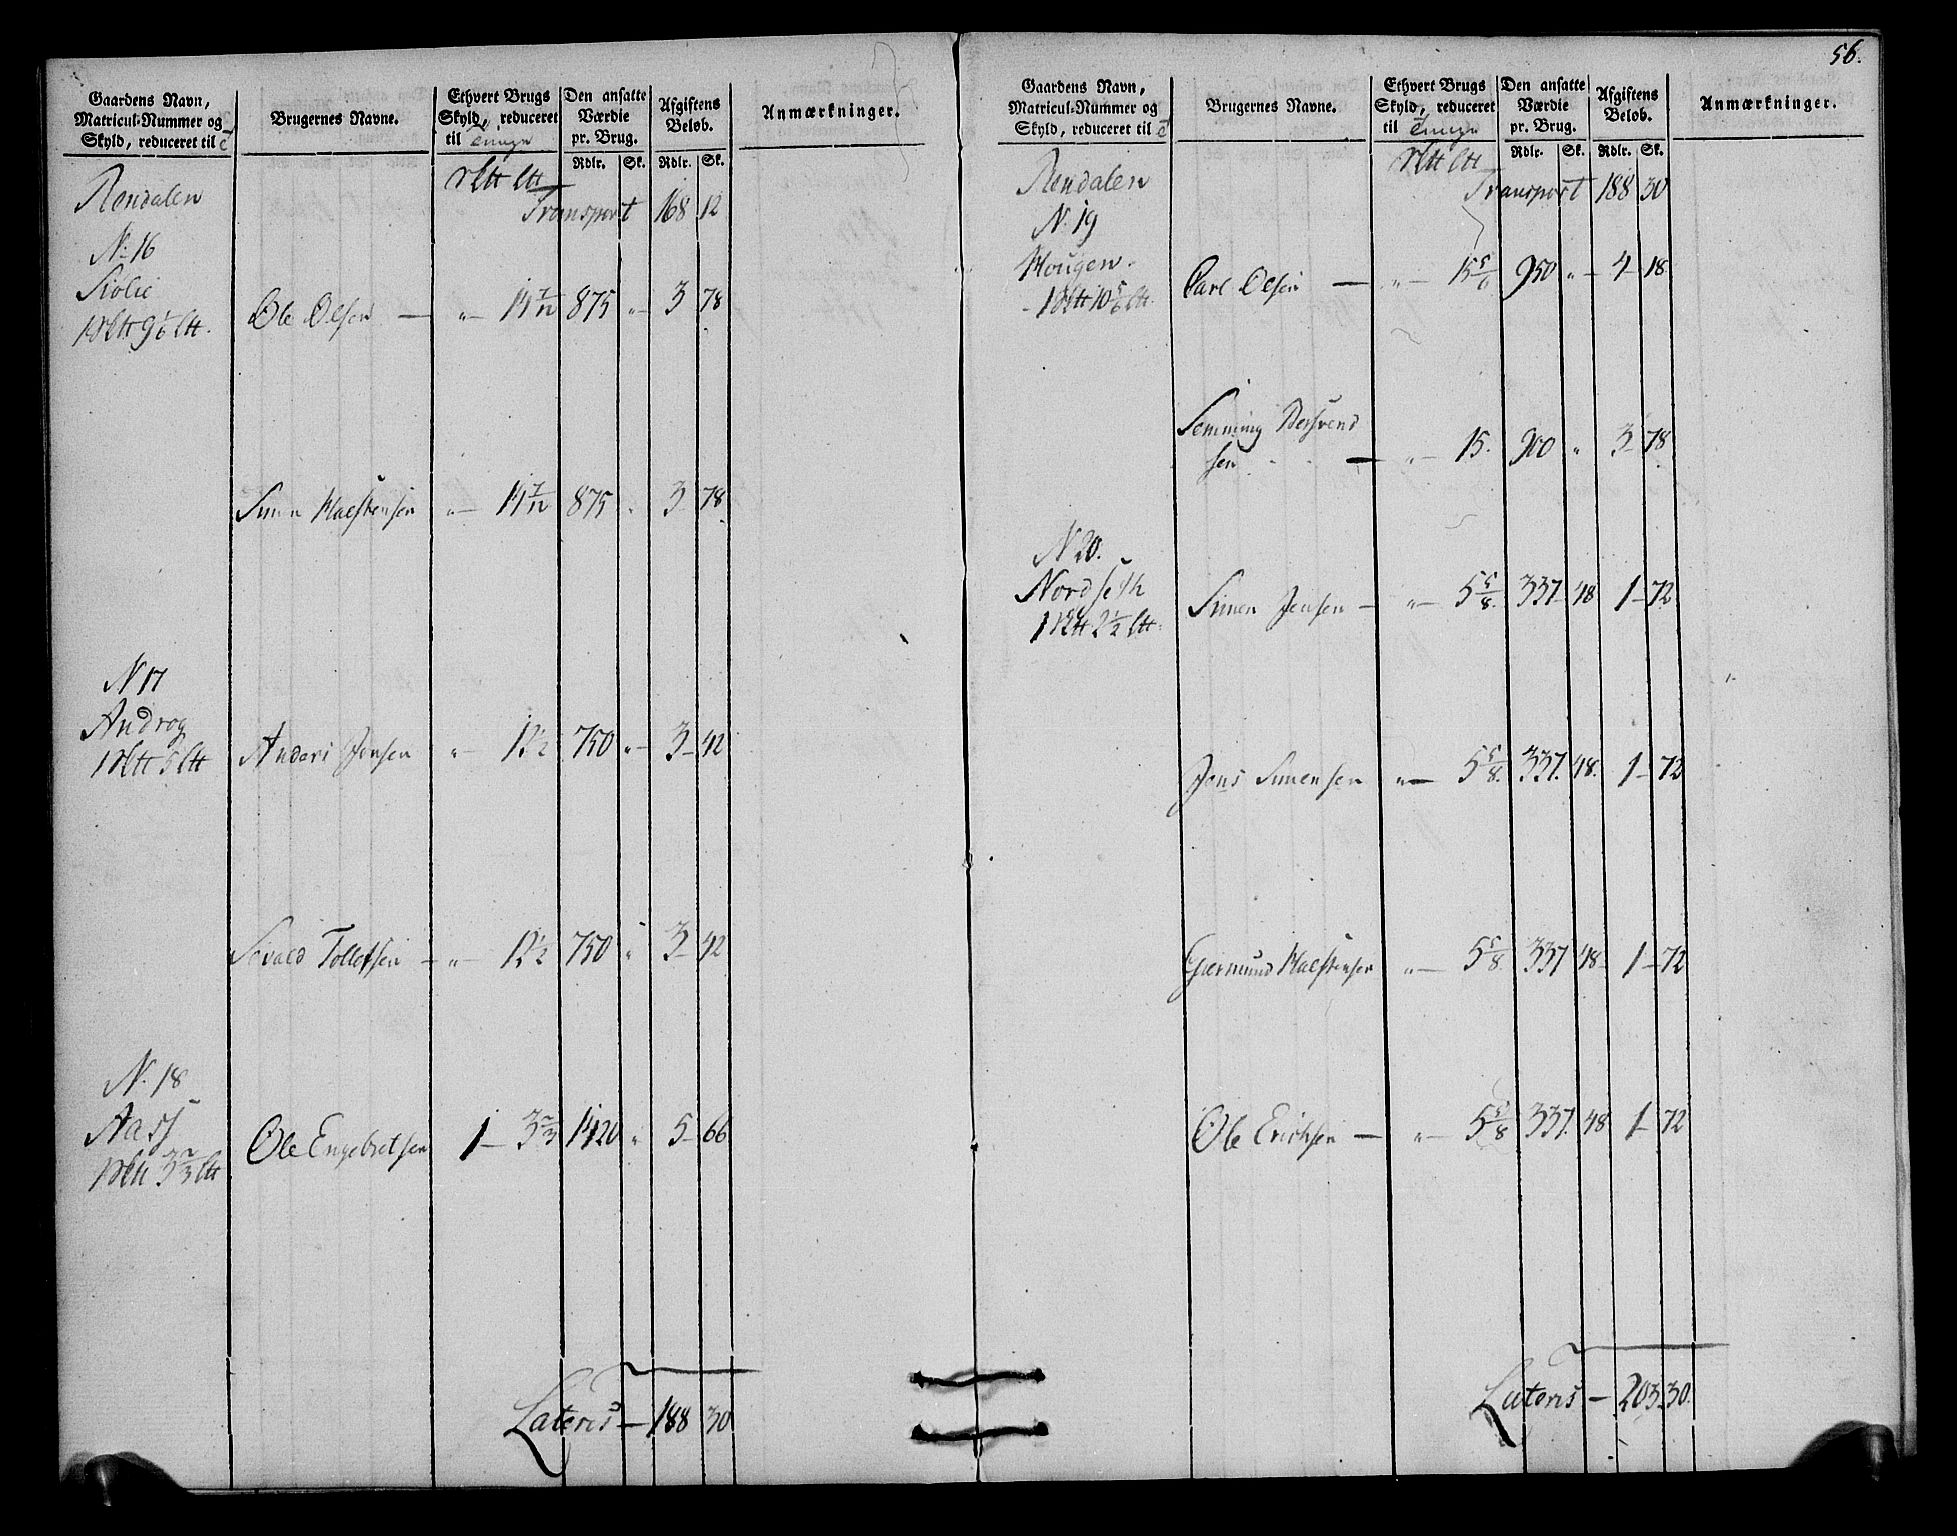 56.
Gaardens Navn, Matricul-Nummer og Skyld, reduceret til
Brugernes Navne.
Ethvert Brugs Skyld, reduceret til Tunge
Den ansatte Værdie pr. Brug.
Afgiftens Beløb.
Anmærkninger.
Rdlr. Sk. Rdlr. Sk.
Rendalen
Transport 168 12
N. 16
Siølie
Ole Olsen — " — 14 7/12 875 " — 3 78
9 1/6
Simen Halstensen " — 14 7/12 875 " 3 78
N 17
Androg
Anders Jensen " — 12 1/2 750 " — 3 — 42
Sevald Tollefsen — " — 12 1/2 750 " 3 — 42
N. 18
Ole Engebretsen 1 — 3 2/3 1120 " 5 — 66
3 2/3
Lateris — 188 30
Gaardens Navn, Matricul-Nummer og Skyld, reduceret til
Brugernes Navne.
Ethvert Brugs Skyld, reduceret til Tunge
Den ansatte Værdie pr. Brug.
Afgiftens Beløb.
Anmærkninger.
Rdlr. Sk. Rdlr. Sk.
Rendalen
Transport 188 30
N. 19
Hougen
Carl Olsen — " — 15 5/6 950 " — 4 — 18
10 5/6
Semming
sen — " — 15. 900 " 3 — 78
N 20.
Nordseth
Simen Jensen — " — 5 5/8. 337 48 1 — 72
2 1/2
Jens Simensen " — 5 5/8. 337. 48. 1 — 72
Giermund Halstensen " — 5 5/8. 337 48 1 — 72
Ole Erichsen — " — 5 5/8 337. 48 1 — 72
Lateris — 203 30.